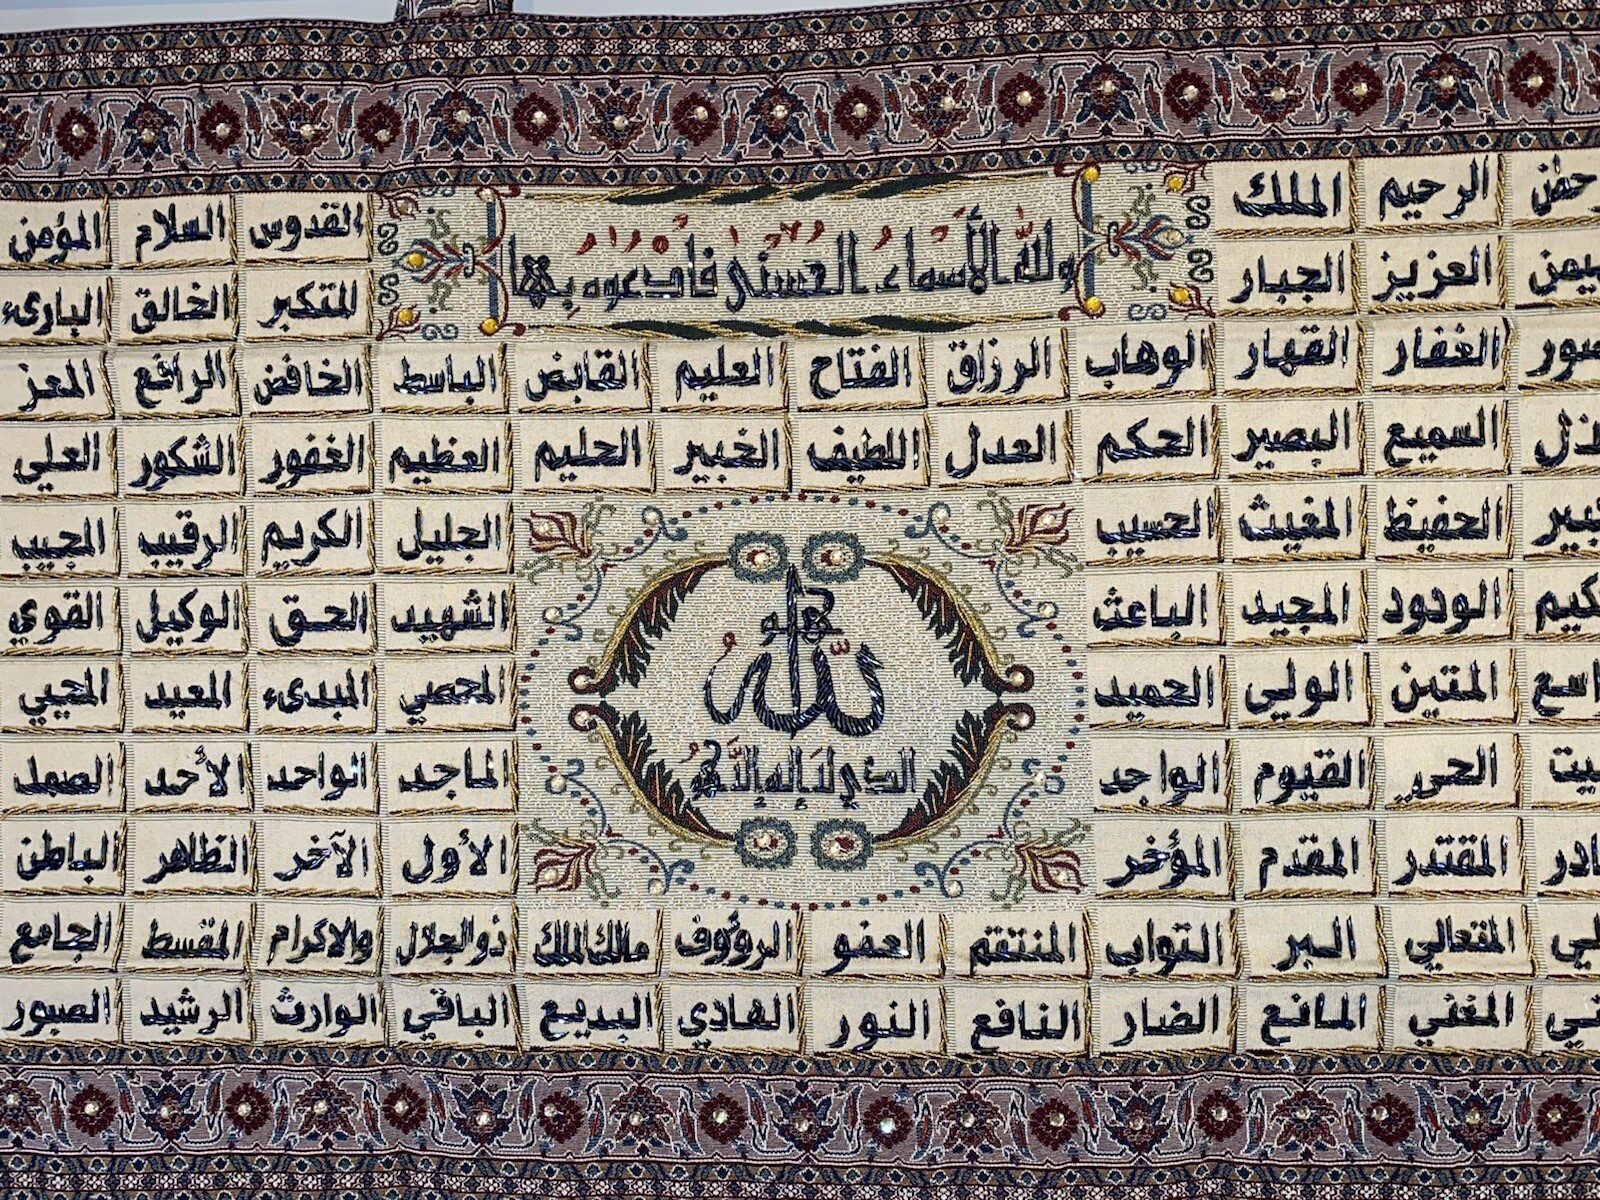 الرحيم الملك ولله الأسماء الحسنى فادعوه بها القدوس السلام المؤمن
العزيز الجبار المتكبر الخالق البارىء
الغفار القهار الوهاب الرزاق الفتاح العليم القابض الباسط الخافض الرافع المعز
السميع البصير الحكم العدل اللطيف الخبير الحليم العظيم الغفور الشكور العلي
الحفيظ المغيث الحسيب الجليل الكريم الرقيب المجيب
الودود المجيد الباعث هو الشهيد الحق الوكيل القوي
المتين الولي الحميد الله المحصي المبدىء المعيد المحيي
الحي القيوم الواجد الذي لا إله إلا هو الماجد الواحد الأحد الصمد
المقتدر المقدم المؤخر الأول الآخر الظاهر الباطن
المتعالي البر التواب المنتقم العفو الرؤوف مالك الملك ذو الجلال والاكرام المقسط الجامع
المغني المانع الضار النافع النور الهادي البديع الباقي الوارث الرشيد الصبور